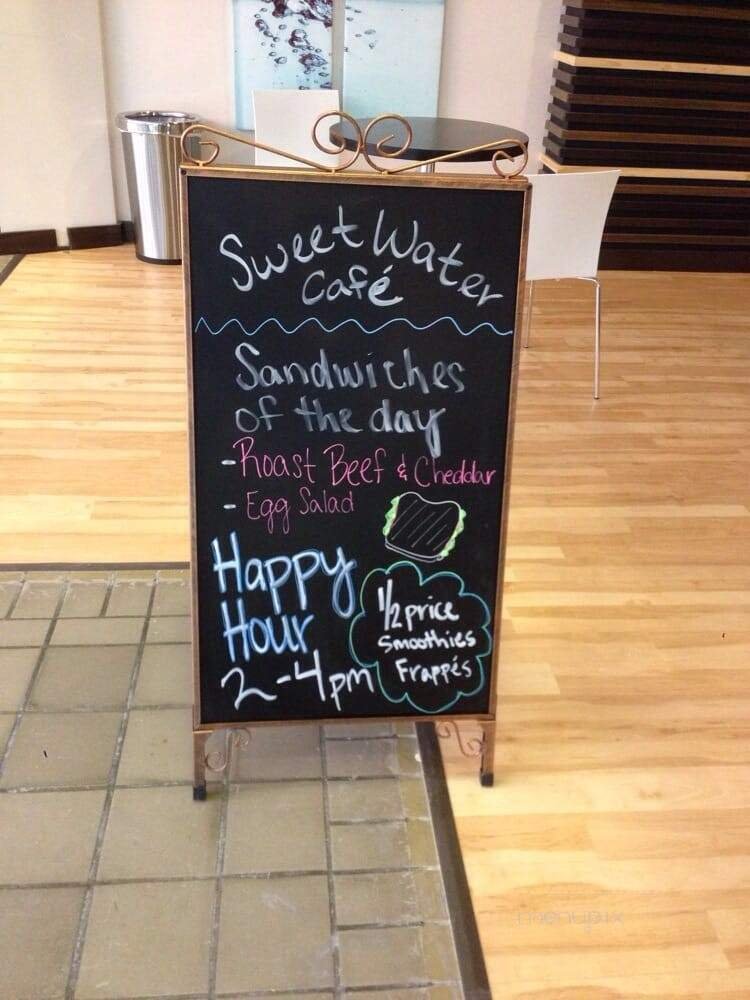 Sweet Water
Café
Sandwiches
of the day
- Roast Beef & Cheddar
- Egg Salad
Happy
Hour
2-4pm
1/2 price
Smoothies
Frappés
menupix